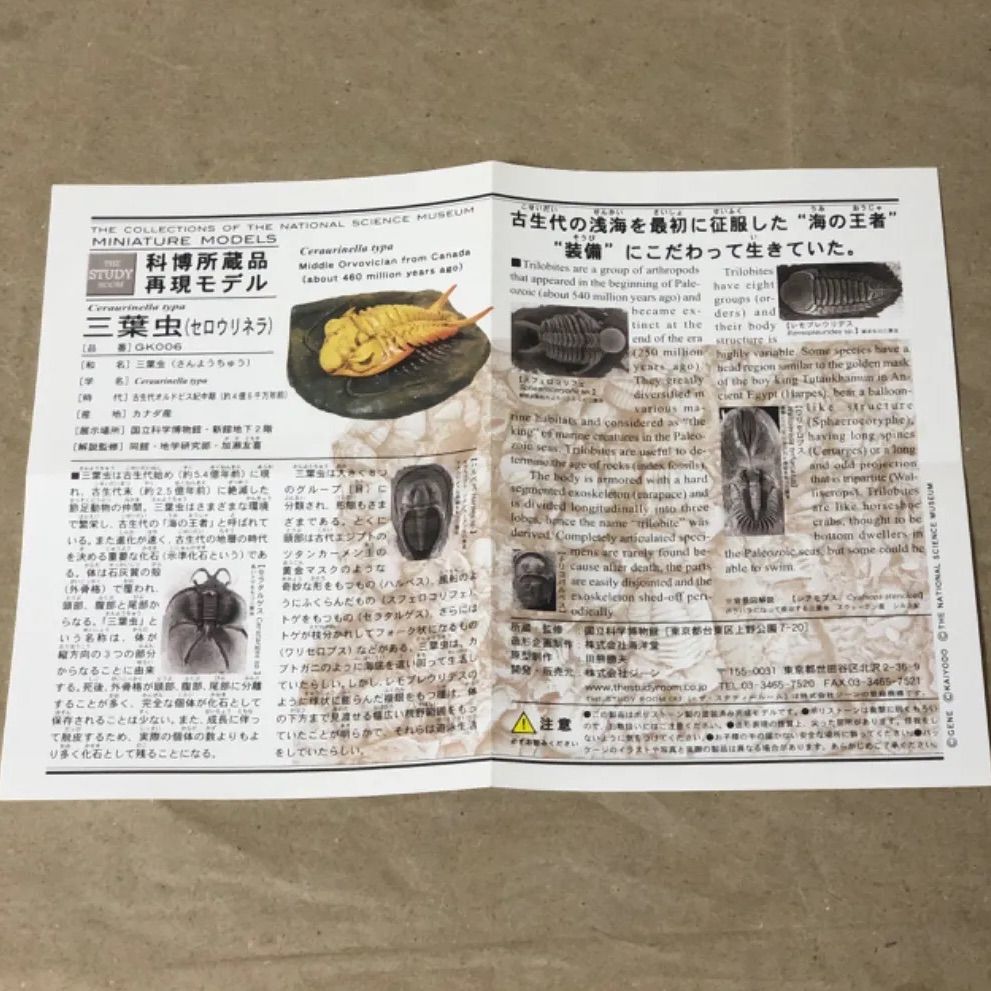 THE COLLECTIONS OF THE NATIONAL SCIENCE MUSEUM
MINIATURE MODELS
THE
STUDY
ROOM
科博所蔵品
再現モデル
Ceraurinella typa
三葉虫(セロウリネラ)
[品 番] GK006
[和 名] 三葉虫(さんようちゅう)
[学 名] Ceraurinella typa
[時 代] 古生代オルドビス紀中期(約4億6千万年前)
[産 地] カナダ産
[展示場所] 国立科学博物館・新館地下2階
[解説監修] 同館・地学研究部・加瀬友喜
Ceraurinella typa
Middle Orvovician from Canada
(about 460 million years ago)
■三葉虫は古生代始め(約5.4億年前)に現
れ、古生代末(約2.5億年前)に絶滅した
節足動物の仲間。三葉虫はさまざまな環境
で繁栄し、古生代の「海の王者」と呼ばれて
いる。また進化が速く、古生代の地層の時代
を決める重要な化石(示準化石という)であ
る。体は石灰質の殻
(外骨格)で覆われ、
頭部、腹部と尾部か
らなる。「三葉虫」と
いう名称は、体が
縦方向の3つの部分
からなることに由来
する。死後、外骨格が頭部、腹部、尾部に分離
することが多く、完全な個体が化石として
保存されることは少ない。また、成長に伴っ
て脱皮するため、実際の個体の数よりもよ
り多く化石として残ることになる。
三葉虫は大きく8つ
のグループ(目)に
分類され、形態もさま
ざまである。とくに
頭部は古代エジプトの
ツタンカーメン王の
黄金マスクのような
奇妙な形をもつもの(ハルペス)、風船のよ
うにふくらんだもの(スフェロコリフェ)
トゲをもつもの(セラタルゲス)、さらには
トゲが枝分かれしてフォーク状になるもの
(ワリセロプス)などがある。三葉虫は、カ
ブトガニのように海底を這い回って生活し
ていたらしい。しかし、レモプレウリデスの
ように球状に膨らんだ複眼をもつ種は、体
の下方まで見渡せる幅広い視野範囲をもっ
ていたことが明らかで、それらは遊泳生活
をしていたらしい。
古生代の浅海を最初に征服した“海の王者”
“装備”にこだわって生きていた。
■Trilobites are a group of arthropods
that appeared in the beginning of Pale-
ozoic (about 540 million years ago) and
became ex-
tinct at the
end of the era
(250 million
years ago).
They greatly
diversified in
various ma-
rine habitats and considered as "the
king" of marine creatures in the Paleo-
zoic seas. Trilobites are useful to de-
termine the age of rocks (index fossils).
The body is armored with a hard
segmented exoskeleton (carapace) and
is divided longitudinally into three
lobes, hence the name "trilobite" was
derived. Completely articulated speci-
mens are rarely found be-
cause after death, the parts
are easily disjointed and the
exoskeleton shed-off peri-
odically.
【スフェロコリフェ
Trilobites
have eight
groups (or-
ders) and
their body
structure is
highly variable. Some species have a
head region similar to the golden mask
of the boy king Tutankhamun in An-
cient Egypt (Harpes), bear a balloon-
like structure
(Sphaerocoryphe),
having long spines
(Certarges) or a long
and odd projection
that is tripartite (Wal-
liserops). Trilobites
are like horseshoe
crabs, thought to be
bottom dwellers in
the Paleozoic seas, but some could be
able to swim.
【レモプレウリデス
所蔵・監修 国立科学博物館[東京都台東区上野公園7-20]
造形企画制作 株式会社海洋堂
原型制作
開発・販売元 株式会社ジーン 〒155-0031 東京都世田谷区北沢2-36-9
www.thestudyroom.co.jp TEL.03-3465-7520 FAX.03-3465-7521
注意
必ずお読みください
©GENE ©KAIYODO ©THE NATIONAL SCIENCE MUSEUM